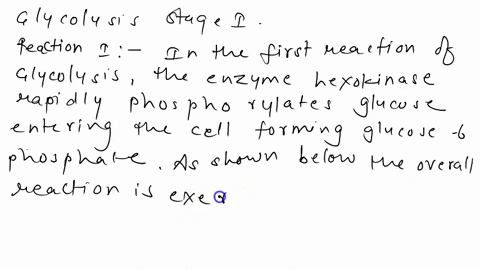 Glycolysis stage I.
Reaction I :- In the first reaction of
Glycolysis, the enzyme hexokinase
rapidly phospho rylates glucose
entering the cell forming glucose -6
phosphate. As shown below the overall
reaction is exe